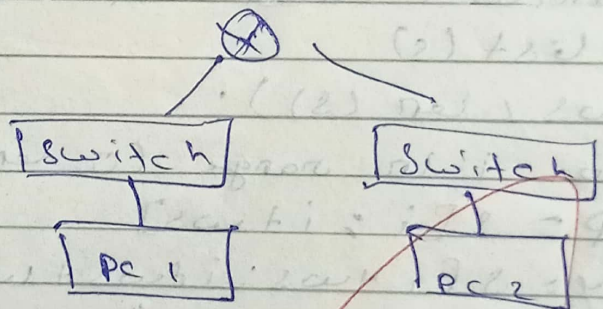 Switch
Switch
PC 1
PC 2